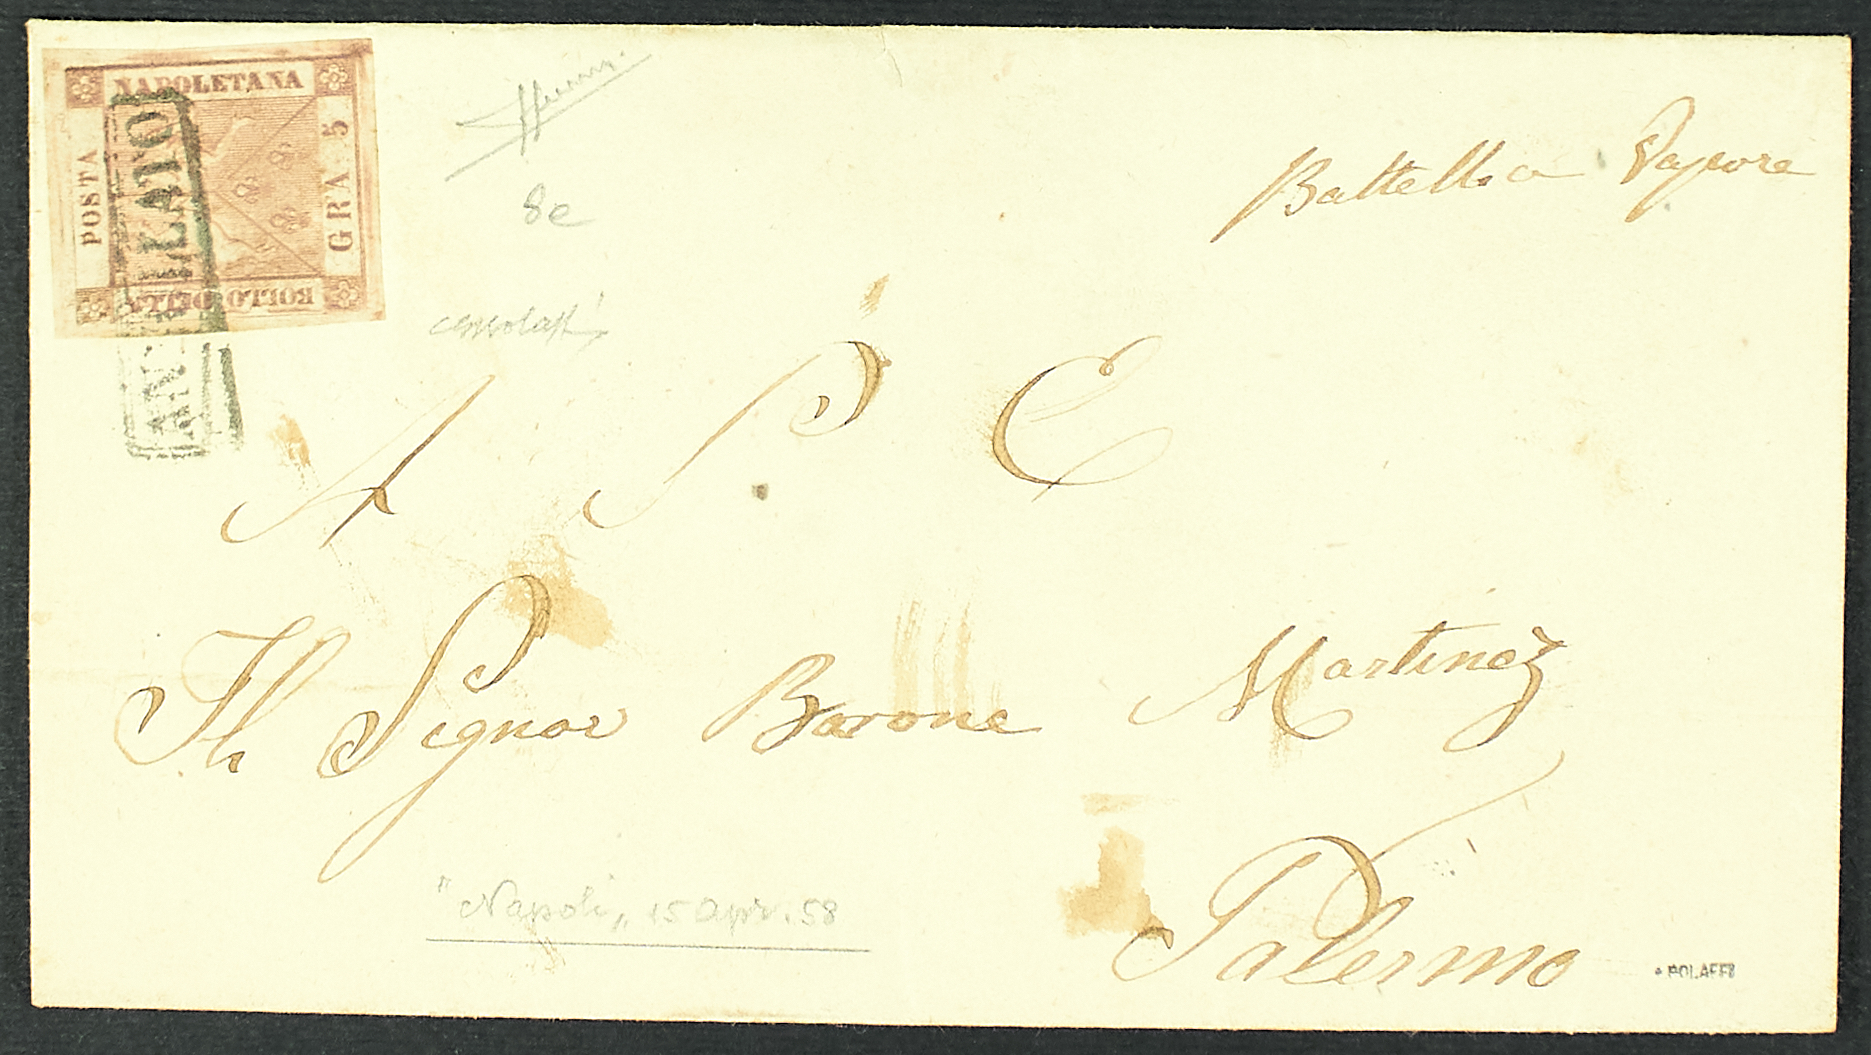 NAPOLETANA
POSTA
GRA 5
BOLLO DELLA
ANNULLATO
8e
Battello a Vapore
A S C
Il Signor Barone Martinez
Palermo
"Napoli, 15 Apr. 58
POLAFFI